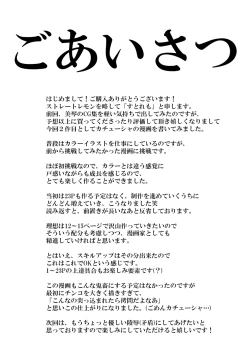 ごあいさつ
はじめまして！ご購入ありがとうございます！
ストレートレモンを略して「すとれも」と申します。
前回、美琴のCG集を軽い気持ちで出してみたのですが、
予想以上に買ってくださったり評価して頂き嬉しくなりまして
今回２作目としてカチューシャの漫画を書いてみました。
普段はカラーイラストを仕事にしているのですが、
前から挑戦してみたかった漫画に挑戦です。
ほぼ初挑戦なので、カラーとは違う感覚に
戸惑いながらも成長を感じるので、
とても楽しく作ることができました。
当初は23Pも作る予定はなく、制作を進めていくうちに
どんどん増えていき、こうなりました笑
読み返すと、前置きが長いなあと反省しております。
理想は12～15ページで沢山作っていきたいので
そういう配分も考慮しつつ、漫画家としても
精進していければと思います。
とはいえ、スキルアップはその分出来たので
これはこれでOKという感じです。
1～23Pの上達具合もお楽しみ要素です(？)
この漫画もこんな鬼畜にする予定はなかったのですが
最初にチンコを大きく描きすぎて、
「こんなの突っ込まれたら拷問だよなあ」
と思いこの仕上がりになりました。(ごめんカチューシャ…)
次回は、もうちょっと優しい陵辱(矛盾)にしてあげたいと
思っておりますので楽しみにしていただけると嬉しいです！